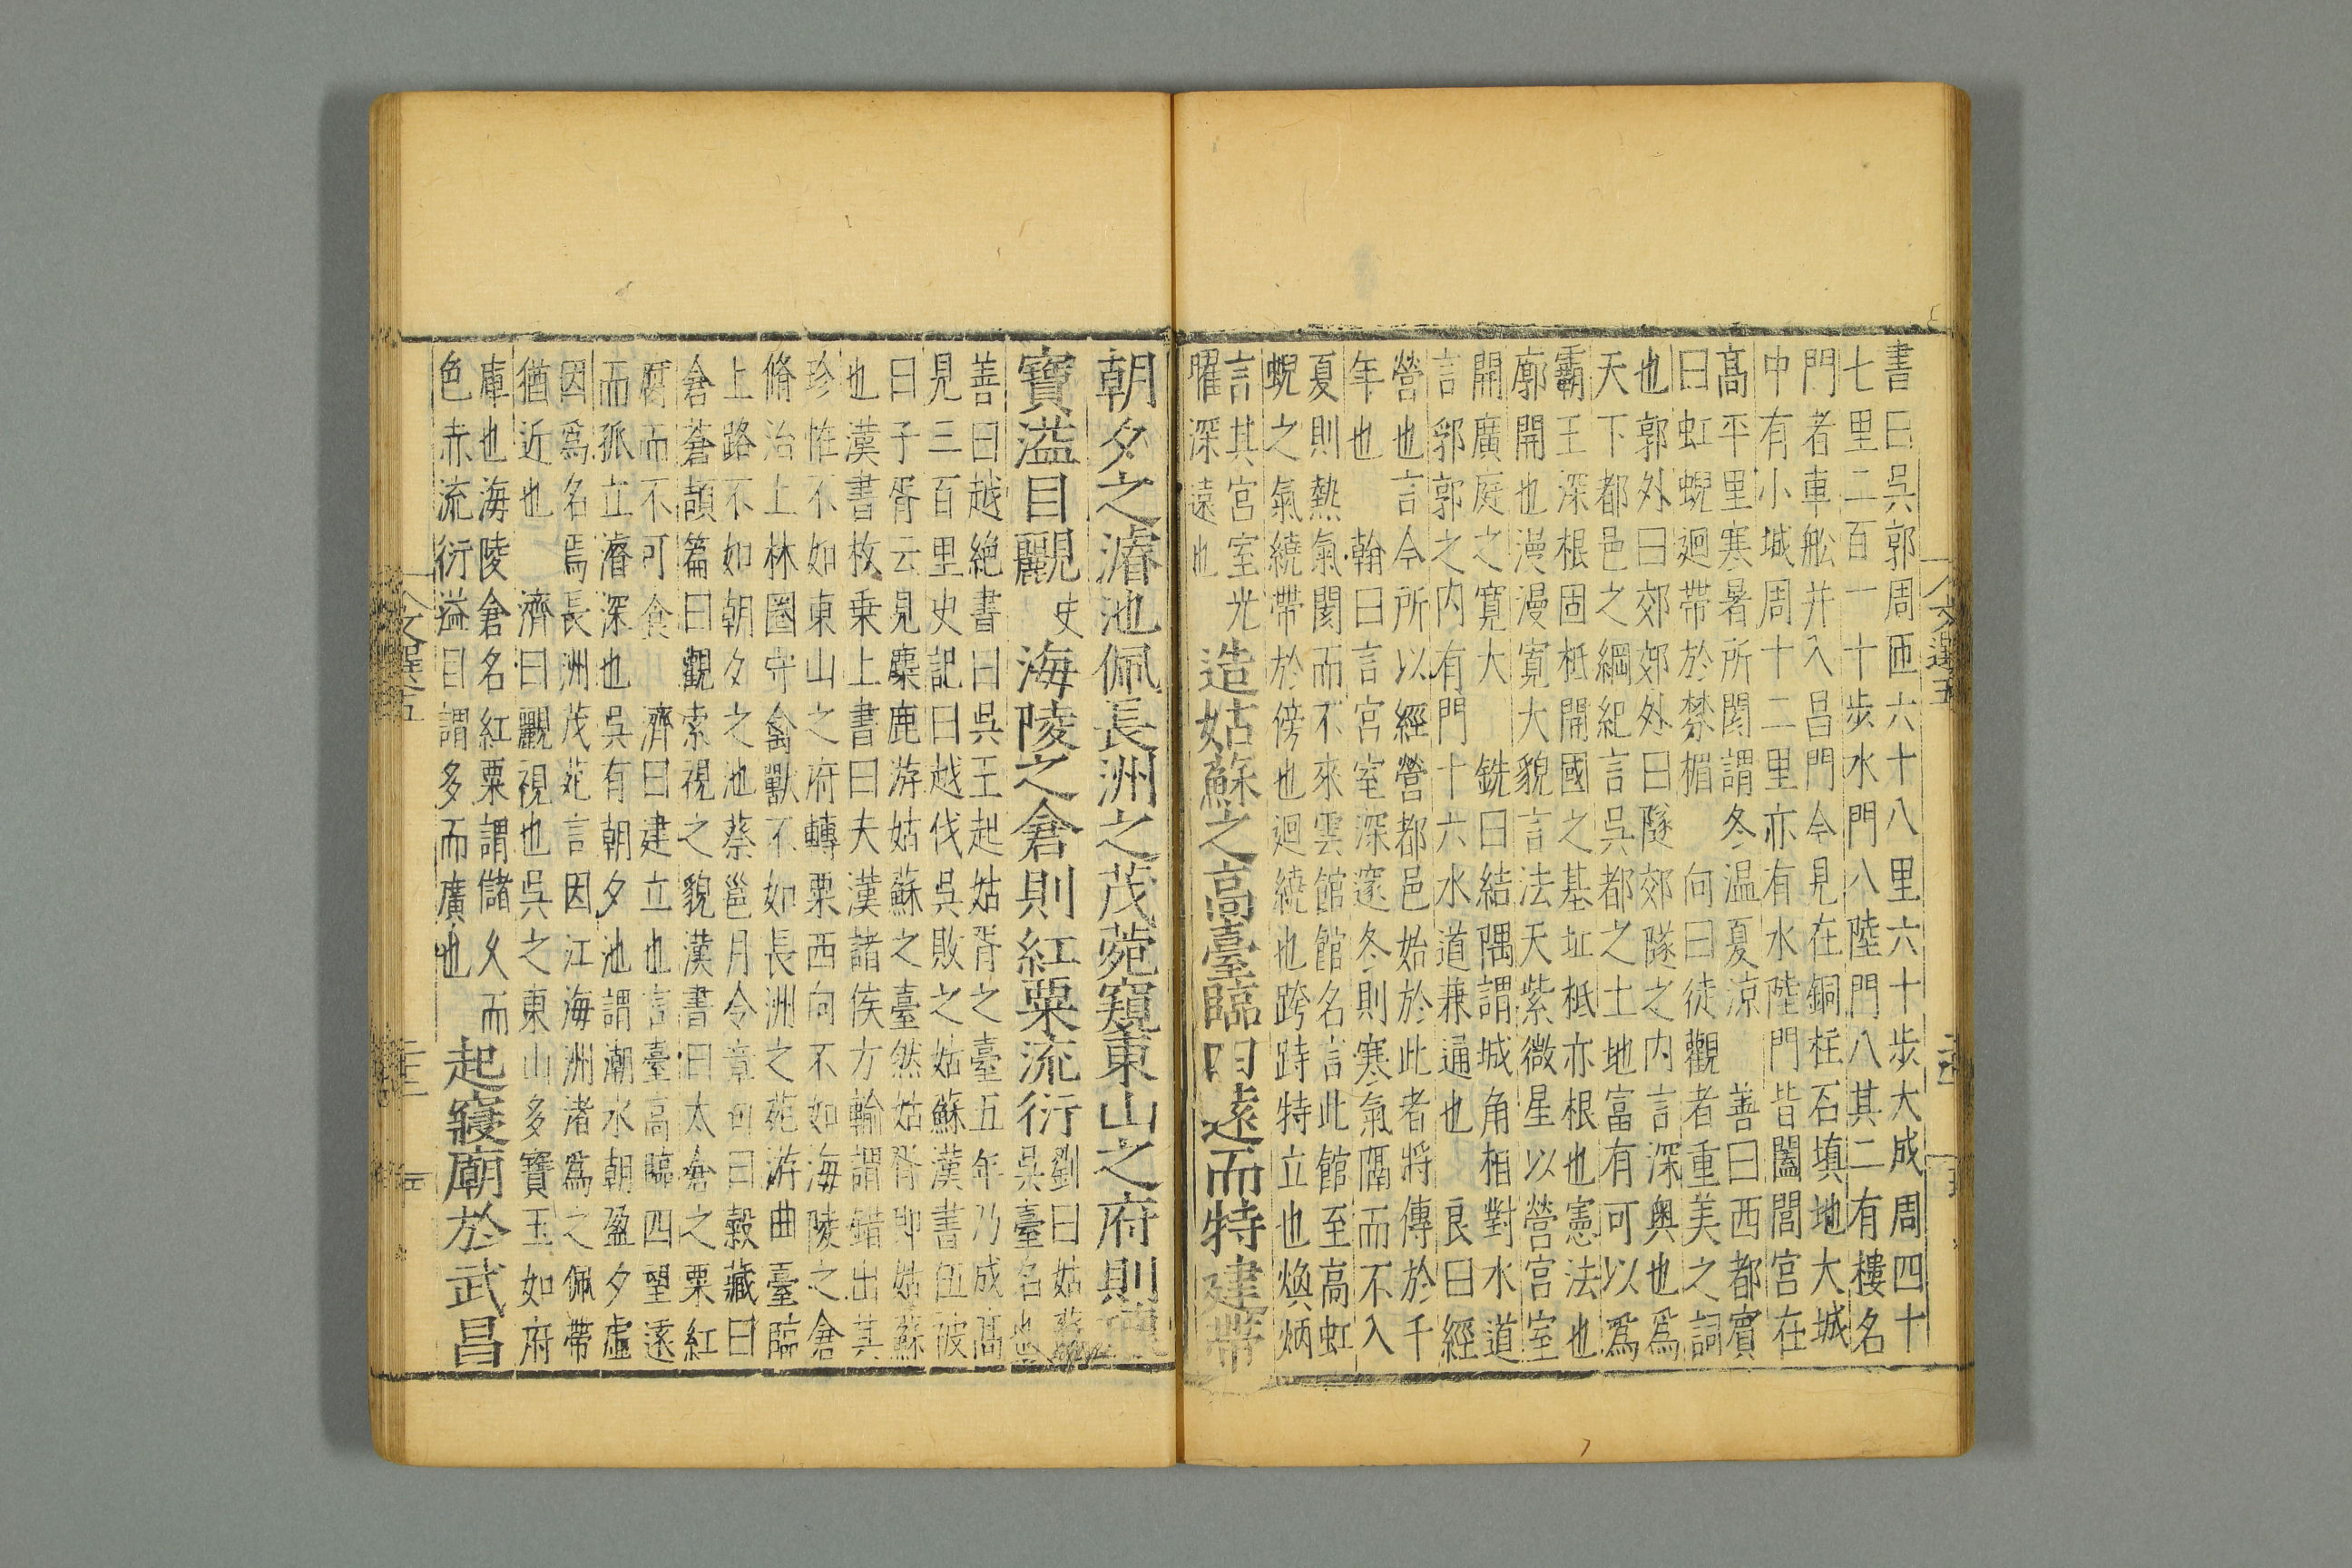 書曰吳郭周匝六十八里六十步大成周四十
七里二百一十步水門八陸門八其二有樓名
門者車舩并入昌門今見在銅柱石填地大城
中有小城周十二里亦有水陸門皆闔閭宮在
髙平里寒暑所閡謂冬温夏涼善曰西都賓
曰虹蜺迴帶於棼楣向曰徒觀者重美之詞
也郭外曰郊郊外曰隧郊隧之内言深奥也爲
天下都邑之綱紀言吳都之土地富有可以爲
霸王深根固柢開國之基址柢亦根也憲法也
廓開也漫漫寛大貌言法天紫微星以營宮室
開廣庭之寛大銑曰結隅謂城角相對水道
言郛郭之内有門十六水道兼通也良曰經
營也言今所以經營都邑始於此者將傳於千
年也翰曰言宮室深邃冬則寒氣隔而不入
夏則熱氣閡而不來雲館館名言此館至高虹
蜺之氣繞帶於傍也迴繞也跨跱特立也煥炳
言其宮室光
曜深遠也
造姑蘇之高臺臨四遠而特建帶
朝夕之濬池佩長洲之茂苑窺東山之府則瓌
寶溢目䚕
史
海陵之倉則紅粟流衍
劉曰姑蘇
吳臺名也
善曰越絶書曰吳王起姑胥之臺五年乃成髙
見三百里史記曰越伐吳敗之姑蘇漢書伍被
曰子胥云見麋鹿游姑蘇之臺然姑胥即姑蘇
也漢書枚乗上書曰夫漢諸侯方輸謂錯出其
珍惟不如東山之府轉粟西向不如海陵之倉
脩治上林圏守禽獸不如長洲之苑游曲臺臨
上路不如朝夕之池蔡邕月令章句曰穀藏曰
倉蒼頡篇曰觀索視之貌漢書曰太倉之粟紅
腐而不可食濟曰建立也言臺高臨四望遠
而孤立濬深也吳有朝夕池謂潮水朝盈夕虛
因爲名焉長洲茂苑言因江海洲渚爲之佩帶
猶近也濟曰䚕視也吳之東山多寶玉如府
庫也海陵倉名紅粟謂儲久而
色赤流衍溢目謂多而廣也
起寢廟於武昌
文選五